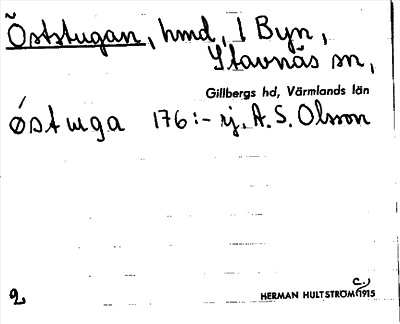 Öststugan, hmd, i Byn,
Stavnäs sn,
Gillbergs hd, Värmlands län
øst uga 176:- ej. A. S. Olsson
c.)
2 HERMAN HULTSTRÖM 1915